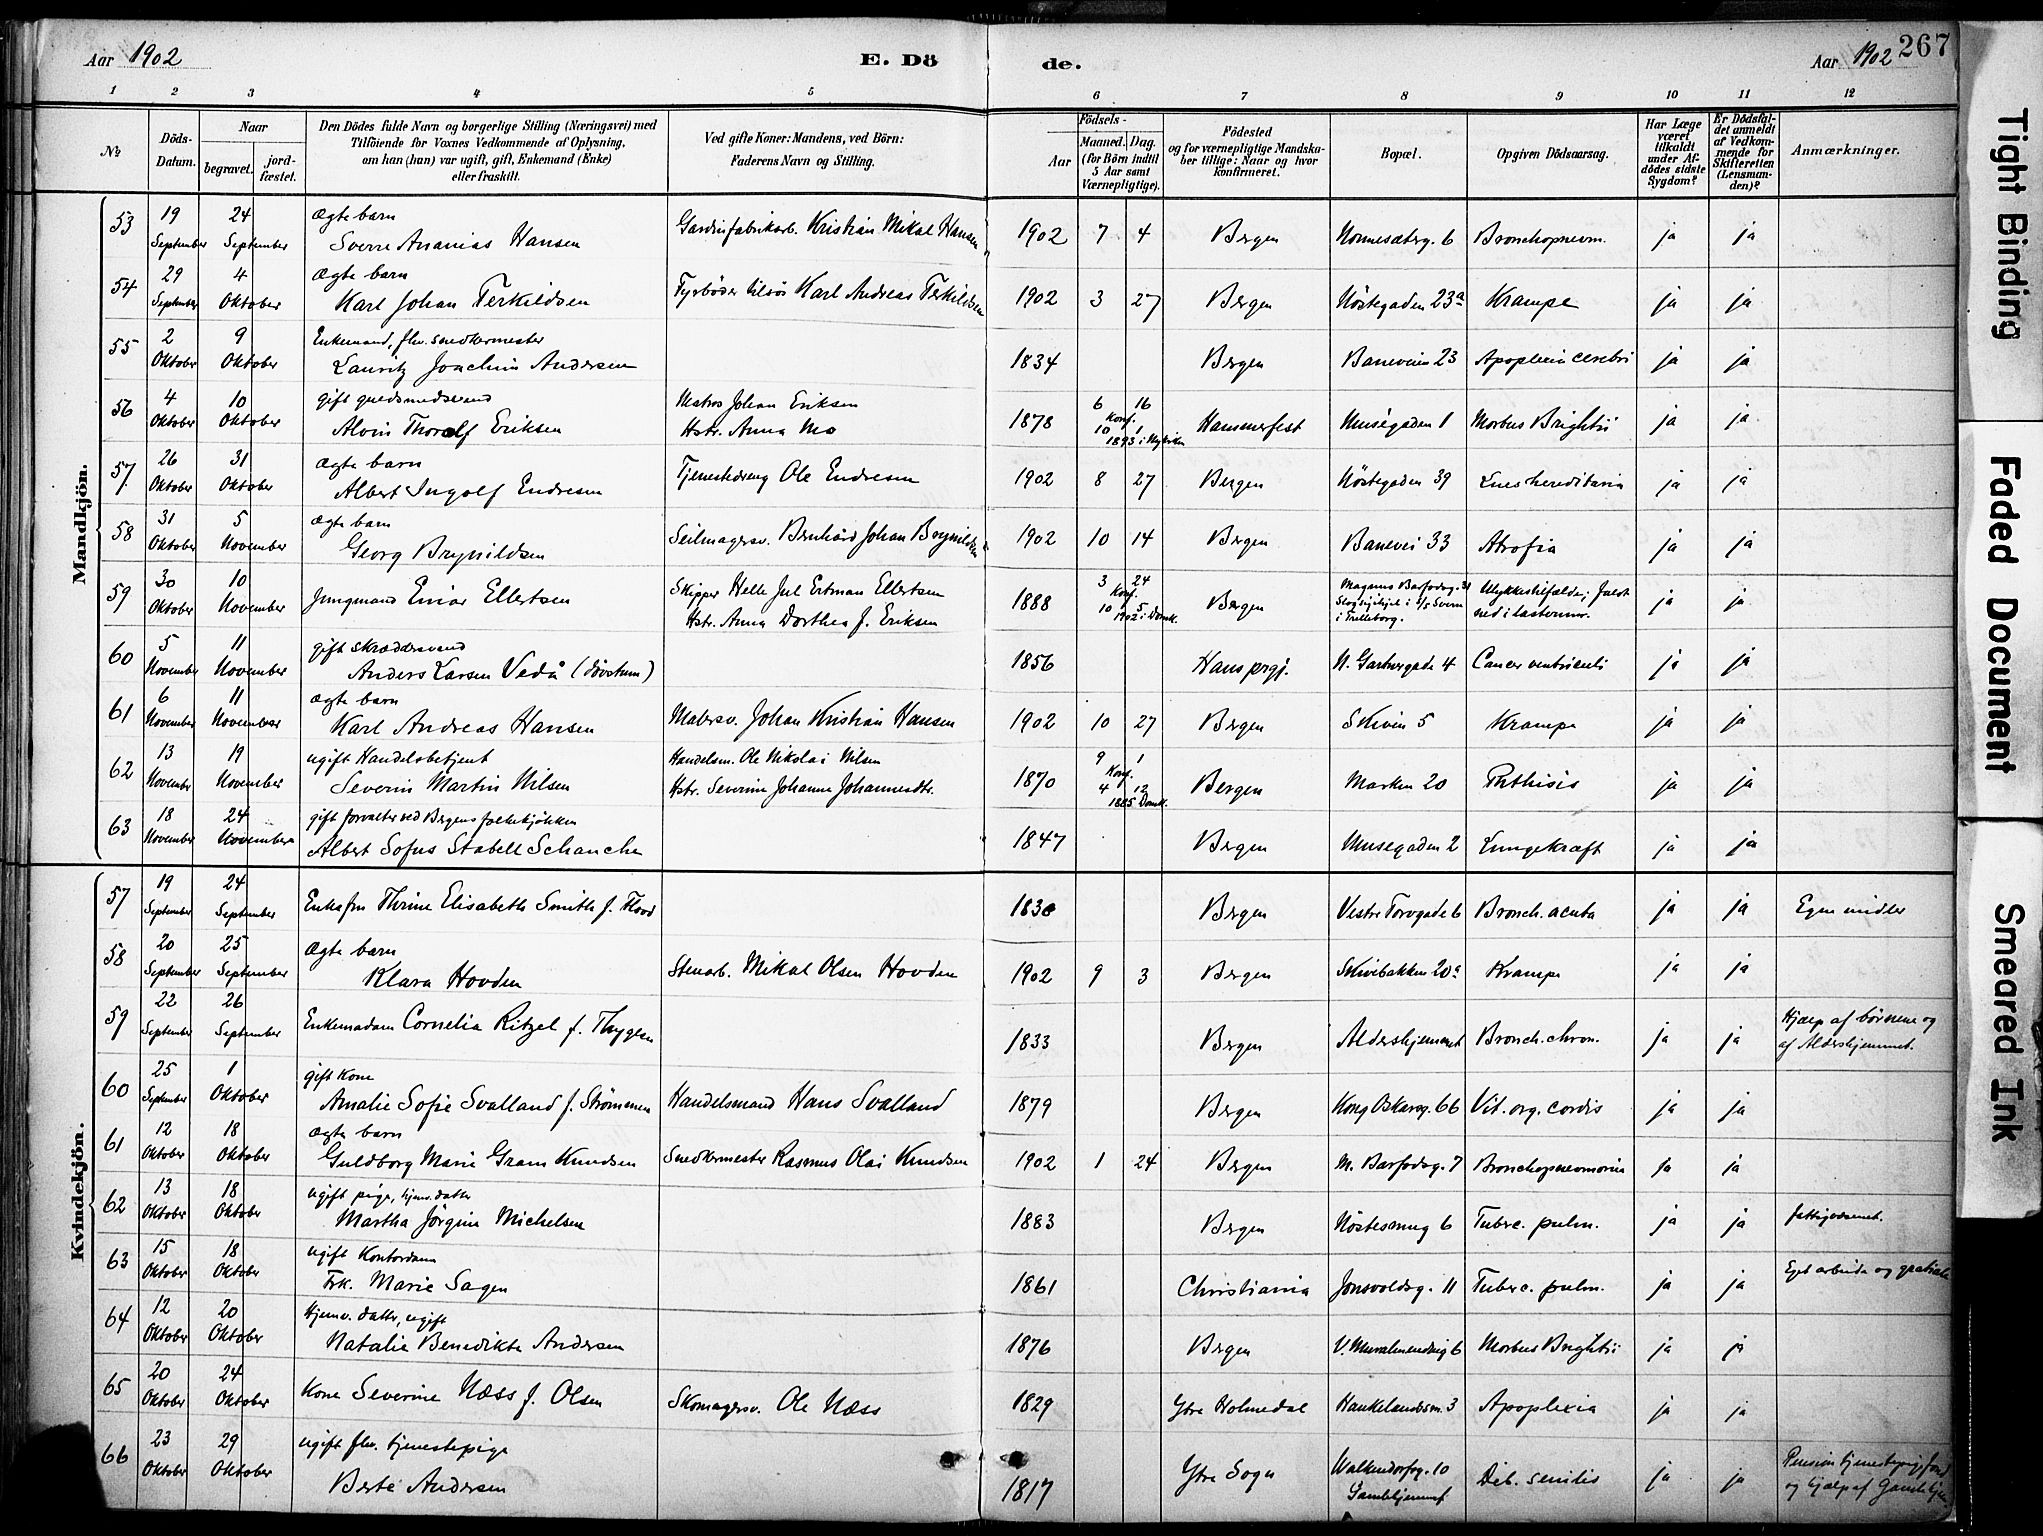 Aar 1902 E. Dö de. Aar 1902 267
1 2 3 4 5 6 7 8 9 10 11 12
No
Döds-Datum.
Naar
begravet.
jord-fæstet.
Den Dödes fulde Navn og borgerlige Stilling (Næringsvei) med
Tilföiende for Voxnes Vedkommende af Oplysning,
om han (hun) var ugift, gift, Enkemand (Enke)
eller fraskilt.
Ved gifte Koner: Mandens, ved Börn:
Faderens Navn og Stilling.
Födsels-
Aar
Maaned. Dag.
(for Börn indtil
5 Aar samt
Værnepligtige).
Födested
og for værnepligtige Mandska-
ber tillige: Naar og hvor
konfirmeret.
Bopæl.
Opgiven Dödsaarsag.
Har Læge
været
tilkaldt
under Af-
dödes sidste
Sygdom?
Er Dödsfal-
det anmeldt
af Vedkom-
mende for
Skifteretten
(Lensman-
den)?
Anmærkninger.
Mandkjön.
53 19 September 24 September ægte barn
Sverre Ananias Hansen Gardinfabrikarb. Kristian Mikal Hansen 1902 7 4 Bergen Nonnesæterg. 6 Bronchopneum. ja ja
54 29 September 4 Oktober ægte barn
Karl Johan Terkildsen Fyrbøder tilsøs Karl Andreas Terkildsen 1902 3 27 Bergen Nöstegaden 23a Krampe ja ja
55 2 Oktober 9 Oktober Enkemand, fhv. snedkermester
Lauritz Joachim Andersen 1834 Bergen Baneveien 23 Apoplexia cerebri ja ja
56 4 Oktober 10 Oktober gift
Alvin Thoralf Eriksen Matros Johan Eriksen
Hstr. Anna Mo 1878 6 16 Konf. 10 1 1893 i Nykirken Hammerfest Muségaden 1 Morbus Brightii ja ja
57 26 Oktober 31 Oktober ægte barn
Albert Ingolf Endresen Tjenestedreng Ole Endresen 1902 8 27 Bergen Nöstegaden 39 Lues hereditaria ja ja
58 31 Oktober 5 November ægte barn
Georg Brynildsen Seilmagersv. Bernhard Johan Brynildsen 1902 10 14 Bergen Banevei 33 Atrofia ja ja
59 30 Oktober 10 November Jungmand Einar Ellertsen Skipper Helle Jul Ertman Ellertsen
Hstr. Anna Dorthea f. Eriksen 1888 3 24 Konf. 10 5 1902 i Domk. Bergen Magnus Barfodsg. 31
i Trelleborg. Ulykkestilfælde; faldt
ned i lasterum. ja ja
60 5 November 11 November gift skræddersvend
Anders Larsen Vedå (døvstum) 1856 Haus prgj. N. Gartnergade 4 Cancer ventriculi ja ja
61 6 November 11 November ægte barn
Karl Andreas Hansen Malersv. Johan Kristian Hansen 1902 10 27 Bergen Skiven 5 Krampe ja ja
62 13 November 19 November ugift Handelsbetjent
Severin Martin Nilsen Handelsm. Ole Nikolai Nilsen
Hstr. Severine Johanne Johannesdtr. 1870 9 1 Konf. 4 12 1885 Domk. Bergen Marken 20 Phthisis ja ja
63 18 November 24 November gift forvalter ved Bergens folkekjøkken
Albert Sofus Stabell Schanche 1847 Bergen Musegaden 2 Lungekræft ja ja
Kvindekjön.
57 19 September 24 September Enkefru Thrine Elisabeth Smith f. Flood 1830 Bergen Vestre Torvgade 6 Bronch. acuta ja ja Egne midler
58 20 September 25 September ægte barn
Klara Hovden Stenarb. Mikal Olsen Hovden 1902 9 3 Bergen Skivebakken 20a Krampe ja ja
59 22 September 26 September Enkemadam Cornelia Ritzel f. Thygesen 1833 Bergen Aldershjemmet Bronch. chron. ja ja Hjælp af børnene og
af Aldershjemmet.
60 25 September 1 Oktober gift Kone
Amalie Sofie Svalland f. Strømmen Handelsmand Hans Svalland 1879 Bergen Kong Oskarsg. 66 Vit. org. cordis ja ja
61 12 Oktober 18 Oktober ægte barn
Guldborg Marie Gram Knudsen Snedkermester Rasmus Olai Knudsen 1902 1 24 Bergen M. Barfodsg. 7 Bronchopneumonia ja ja
62 13 Oktober 18 Oktober ugift pige, hjemv. datter
Martha Jörgine Michelsen 1883 Bergen Nöstesmug 6 Tuberc. pulm. ja ja fattigvæsenet.
63 15 Oktober 18 Oktober ugift Kontordame
Frk. Marie Sagen 1861 Christiania Jonsvoldsg. 11 Tuberc. pulm. ja ja Eget arbeide og
64 12 Oktober 20 Oktober Hjemv. datter, ugift
Natalie Benedikte Andersen 1876 Bergen V. Muralmendvig 6 Morbus Brightii ja ja
65 20 Oktober 24 Oktober Kone Severine Næss f. Olsen Skomagersv. Ole Næss 1829 Ytre Holmedal Haukelandsm. 3 Apoplexia ja ja
66 23 Oktober 29 Oktober ugift fhv. tjenestepige
Berte Andersen 1817 Ytre Sogn Walkendorfsg. 10
Gamlehjemmet Deb. senilis ja ja Pension tjenestepigefond
og hjælp af Gamlehjem
Tight Binding
Faded Document
Smeared Ink